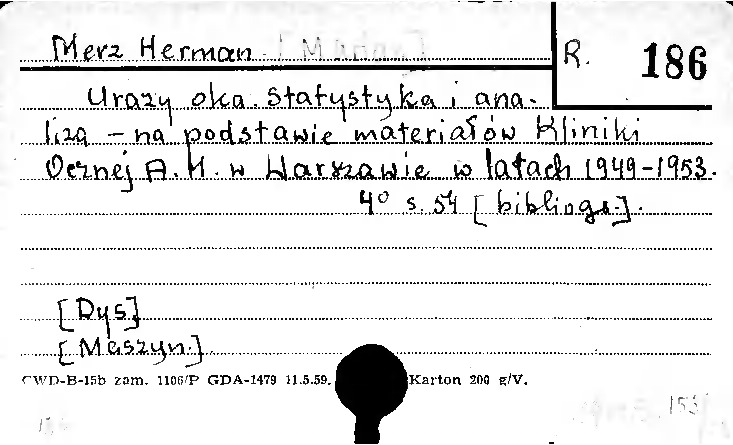 Merz Herman
R. 186
Urazy oka. Statystyka i ana-
liza – na podstawie materiałów Kliniki
Ocznej A. M. w Warszawie w latach 1949-1953.
4° s. 54 [bibliogr.].
[Dys]
[Maszyn.]
CWD-B-15b zam. 1106/P GDA-1479 11.5.59. Karton 200 g/V.
153/